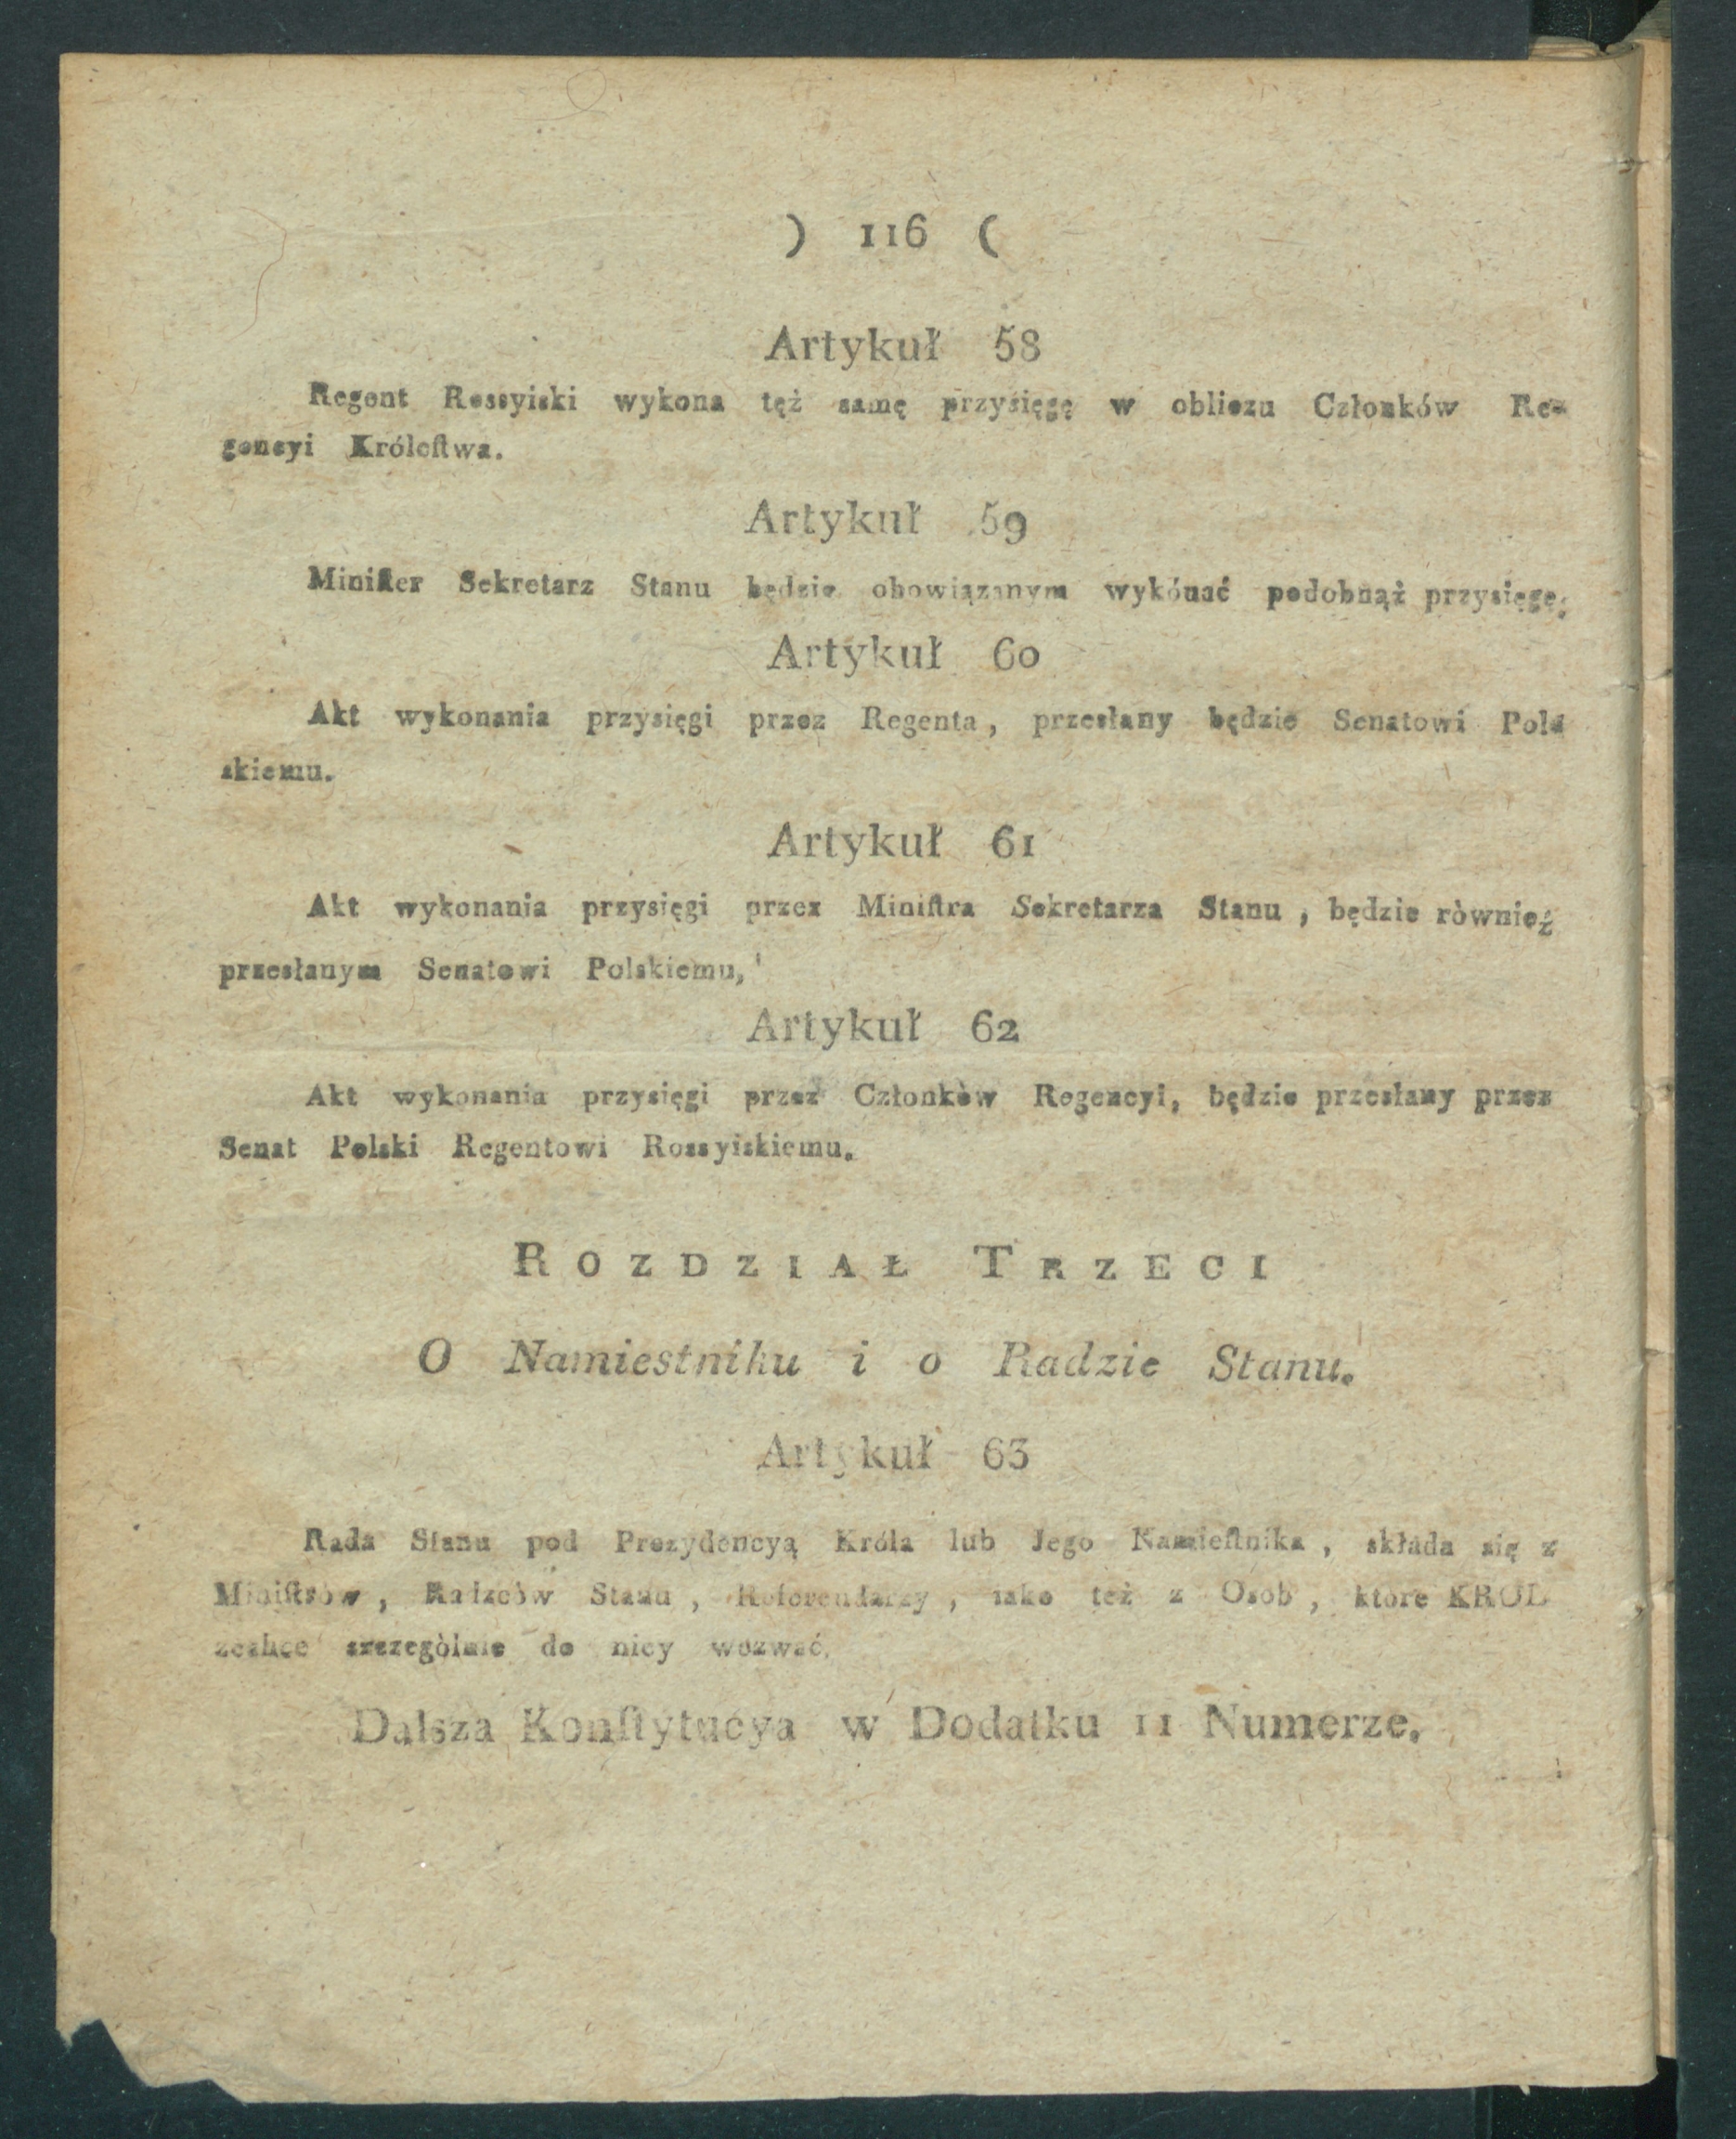 ) 116 (
Artykuł 58
Regent Rossyiski wykona tęż samę przysięgę w obliczu Członków Re-
gencyi Króleſtwa.
Artykuł 59
Miniſter Sekretarz Stanu będzie obowiązanym wykónać podobnąż przysięgę.
Artykuł 60
Akt wykonania przysięgi przez Regenta, przesłany będzie Senatowi Pol-
skiemu.
Artykuł 61
Akt wykonania przysięgi przez Miniſtra Sekretarza Stanu, będzie ròwnież
przesłanym Senatowi Polskiemu,
Artykuł 62
Akt wykonania przysięgi przez Członkòw Regencyi, będzie przesłany przez
Senat Polski Regentowi Rossyiskiemu.
ROZDZIAŁ TRZECI
O Namiestniku i o Radzie Stanu.
Artykuł 63
Rada Stanu pod Prezydencyą Króla lub Jego Namieſtnika, składa się z
Miniſtròw, Radzcòw Stanu, Referendarzy, iako też z Osob, ktore KROL
zechce szczegòlnie do niey wezwać.
Dalsza Konſtytucya w Dodatku 11 Numerze.